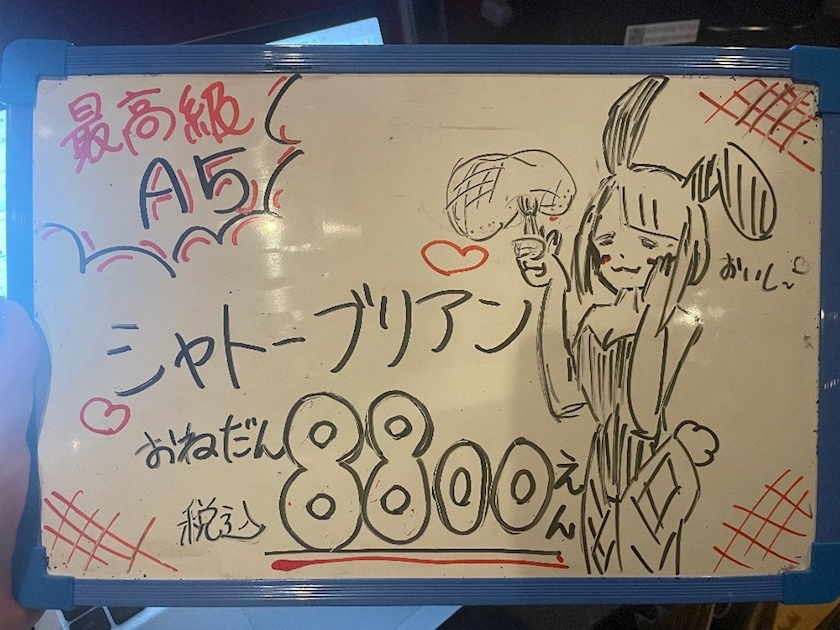 最高級
A5
おいし~
シャトーブリアン
おねだん8800えん
税込